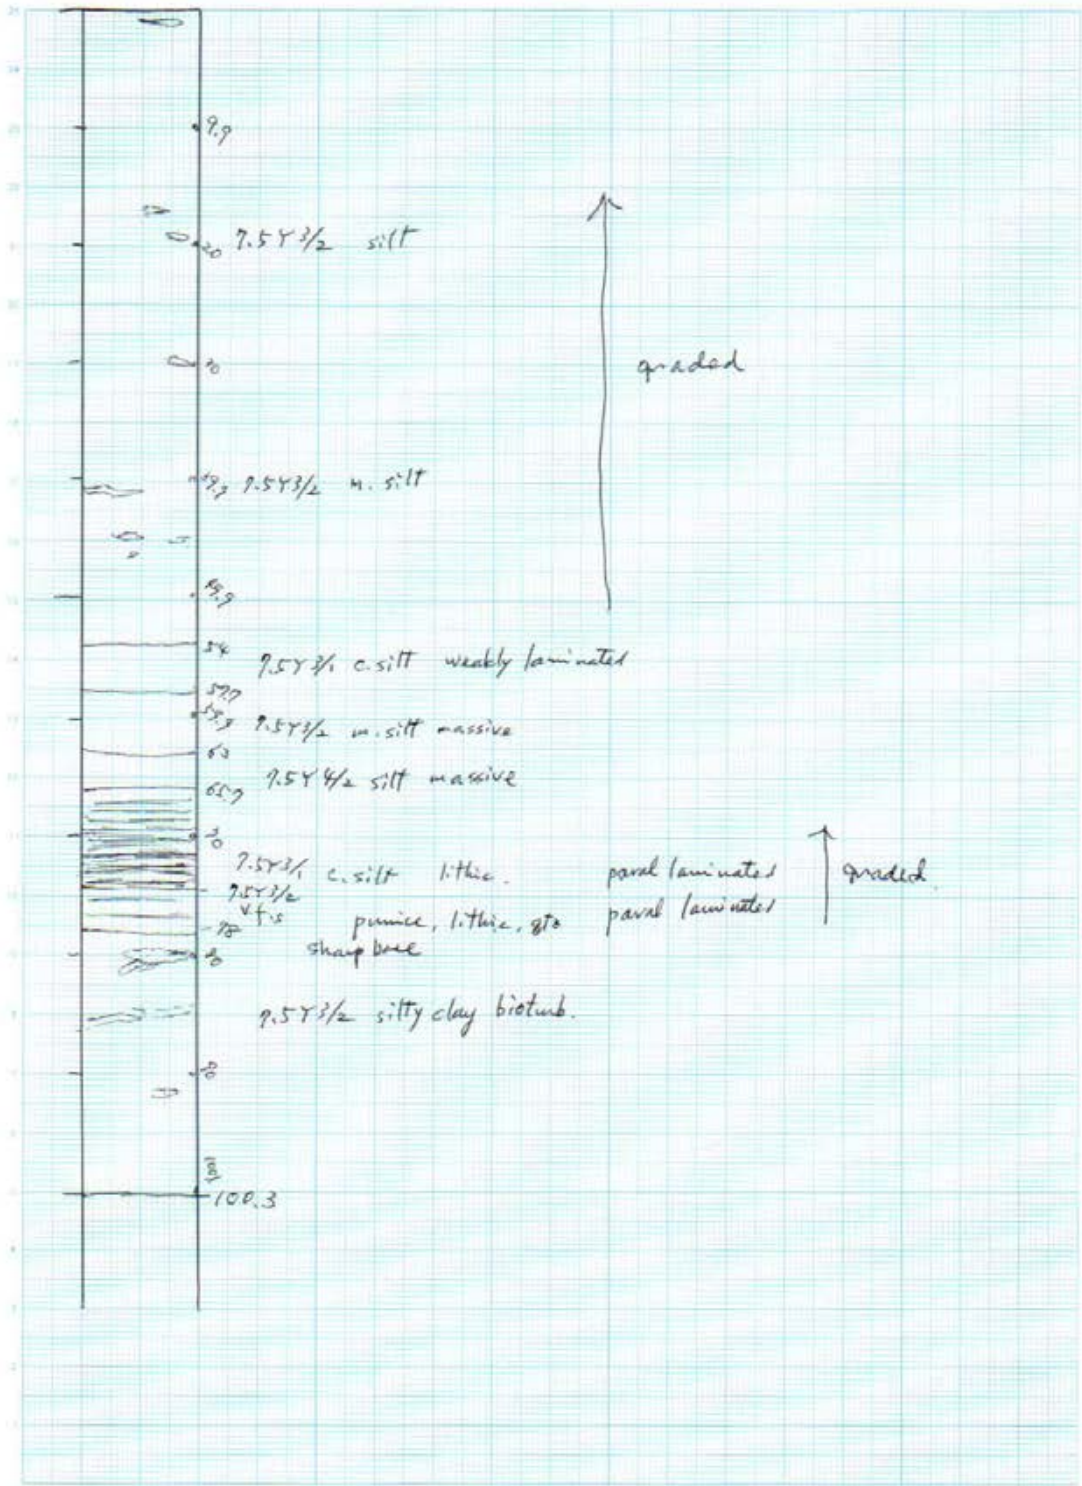 9.9
20 7.5Y3/2 silt
30
graded
39.9 7.5Y3/2 m. silt
49.9
54
7.5Y3/1 c.silt weakly laminated
57.7
59.9 7.5Y3/2 m. silt massive
63
7.5Y4/2 silt massive
65.7
70
7.5Y3/1 c.silt lithic. paral laminated graded.
7.5Y3/2
v.f.s pumice, lithic, qtz paral laminated
78
sharp base
80
7.5Y3/2 silty clay bioturb.
90
100
100.3